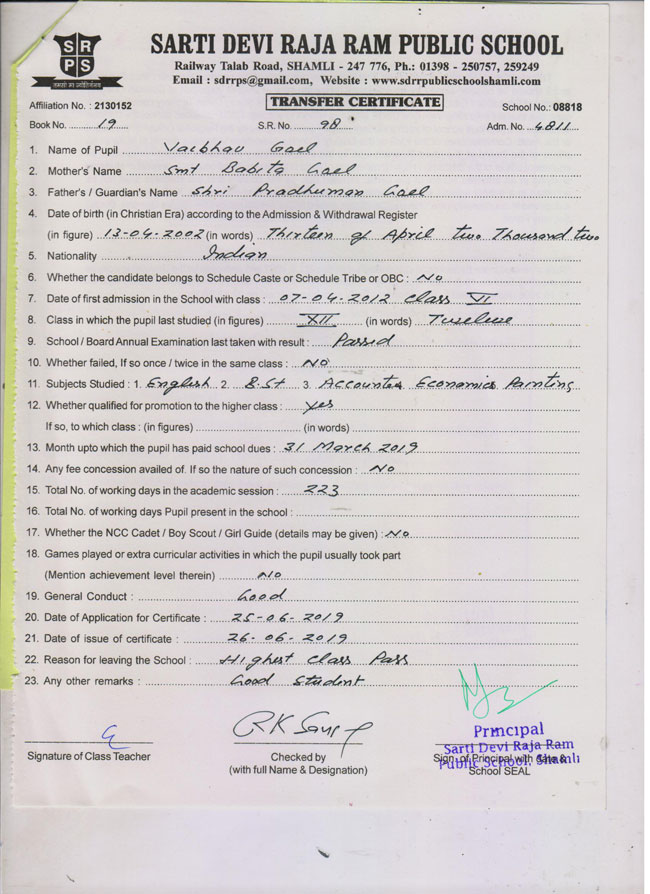 SRPS
तमसो मा ज्योतिर्गमय
SARTI DEVI RAJA RAM PUBLIC SCHOOL
Railway Talab Road, SHAMLI - 247 776, Ph.: 01398 - 250757, 259249
Email : sdrrps@gmail.com, Website : www.sdrrpublicschoolshamli.com
Affiliation No. : 2130152 TRANSFER CERTIFICATE School No.: 08818
Book No. 19 S.R. No. 98 Adm. No. 4811
1. Name of Pupil Vaibhav Goel
2. Mother's Name Smt Babita Goel
3. Father's / Guardian's Name Shri Pradhuman Goel
4. Date of birth (in Christian Era) according to the Admission & Withdrawal Register
(in figure) 13-04-2002 (in words) Thirteen of April two Thousand two
5. Nationality Indian
6. Whether the candidate belongs to Schedule Caste or Schedule Tribe or OBC : No
7. Date of first admission in the School with class : 07-04-2012 Class VI
8. Class in which the pupil last studied (in figures) XII (in words) Twelve
9. School / Board Annual Examination last taken with result : Passed
10. Whether failed, If so once / twice in the same class : No
11. Subjects Studied : 1. English 2. B.St 3. Accounts Economics Painting
12. Whether qualified for promotion to the higher class : Yes
If so, to which class : (in figures) (in words)
13. Month upto which the pupil has paid school dues : 31 March 2019
14. Any fee concession availed of. If so the nature of such concession : No
15. Total No. of working days in the academic session : 223
16. Total No. of working days Pupil present in the school :
17. Whether the NCC Cadet / Boy Scout / Girl Guide (details may be given) : No
18. Games played or extra curricular activities in which the pupil usually took part
(Mention achievement level therein) No
19. General Conduct : Good
20. Date of Application for Certificate : 25-06-2019
21. Date of issue of certificate : 26-06-2019
22. Reason for leaving the School : Highest Class Pass
23. Any other remarks : Good Student
Principal
Sarti Devi Raja Ram
Public School, Shamli
Signature of Class Teacher
Checked by
(with full Name & Designation)
Sign. of Principal with date &
School SEAL